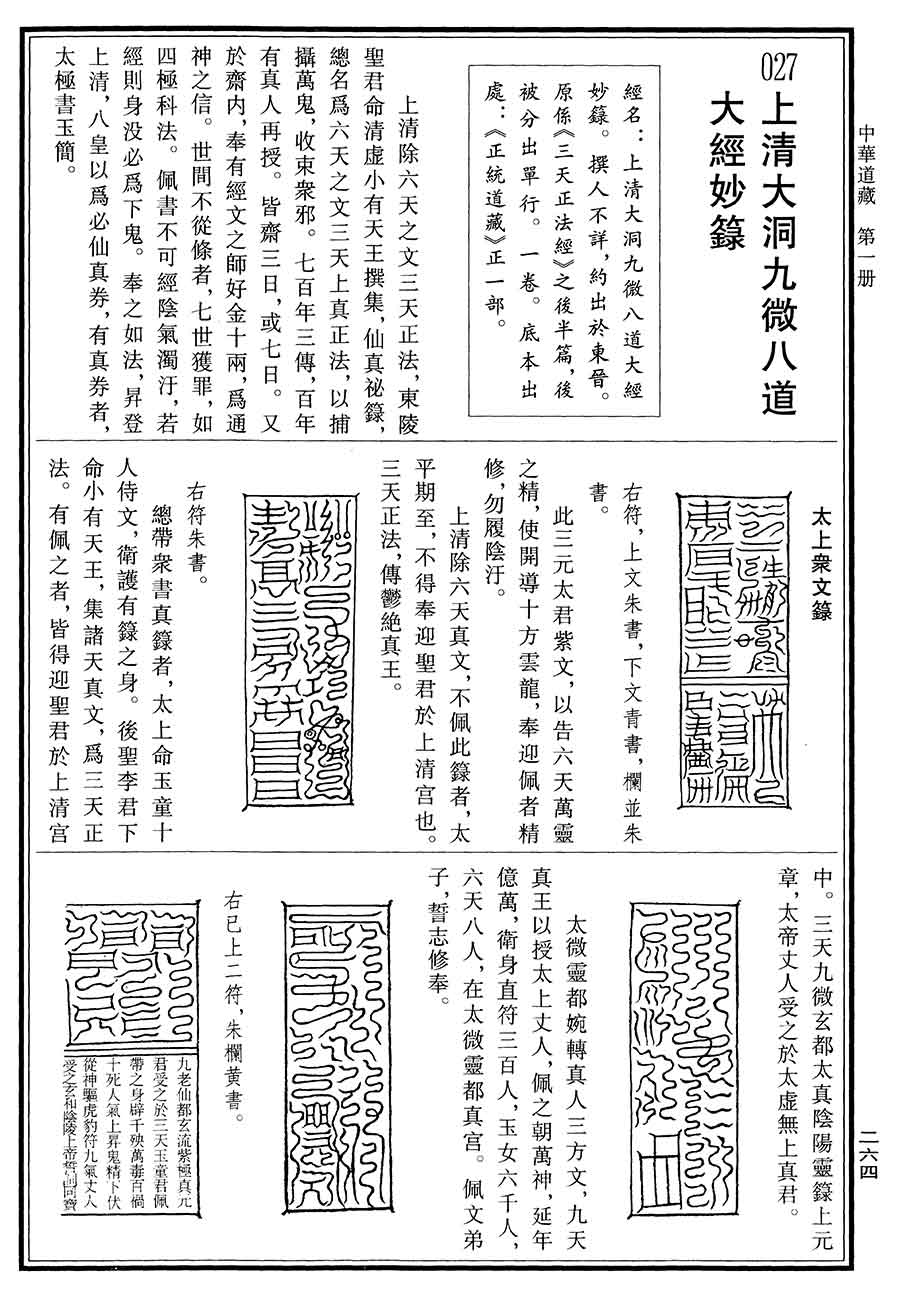 中華道藏　第一册
二六四
027上清大洞九微八道
大經妙籙
經名：上清大洞九微八道大經
妙籙。撰人不詳，約出於東晉。
原係《三天正法經》之後半篇，後
被分出單行。一卷。底本出
處：《正統道藏》正一部。
上清除六天之文三天正法，東陵
聖君命清虛小有天王撰集，仙真祕籙，
總名爲六天之文三天上真正法，以捕
攝萬鬼，收束衆邪。七百年三傳，百年
有真人再授。皆齋三日，或七日。又
於齋内，奉有經文之師好金十兩，爲通
神之信。世間不從條者，七世獲罪，如
四極科法。佩書不可經陰氣濁汙，若
經則身没必爲下鬼。奉之如法，昇登
上清，八皇以爲必仙真券，有真券者，
太極書玉簡。
太上衆文籙
右符，上文朱書，下文青書，欄並朱
書。
此三元太君紫文，以告六天萬靈
之精，使開導十方雲龍，奉迎佩者精
修，勿履陰汙。
上清除六天真文，不佩此籙者，太
平期至，不得奉迎聖君於上清宫也。
三天正法，傳鬱絶真王。
右符朱書。
總帶衆書真籙者，太上命玉童十
人侍文，衛護有籙之身。後聖李君下
命小有天王，集諸天真文，爲三天正
法。有佩之者，皆得迎聖君於上清宫
中。三天九微玄都太真陰陽靈籙上元
章，太帝丈人受之於太虚無上真君。
太微靈都婉轉真人三方文，九天
真王以授太上丈人，佩之朝萬神，延年
億萬，衛身直符三百人，玉女六千人，
六天八人，在太微靈都真宫。佩文弟
子，誓志修奉。
右已上二符，朱欄黄書。
九老仙都玄流紫極真元
君受之於三天玉童君佩
帶之身辟千殃萬毒百禍
十死人氣上昇鬼精下伏
從神驅虎豹符九氣丈人
受之玄和陰陵上帝誓